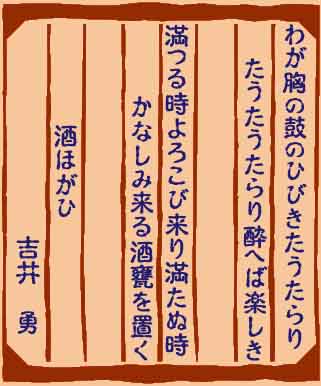 わが胸の鼓のひびきたうたらり
たうたうたらり酔へば楽しき
満つる時よろこび来り満たぬ時
かなしみ来る酒甕を置く
酒ほがひ
吉井 勇